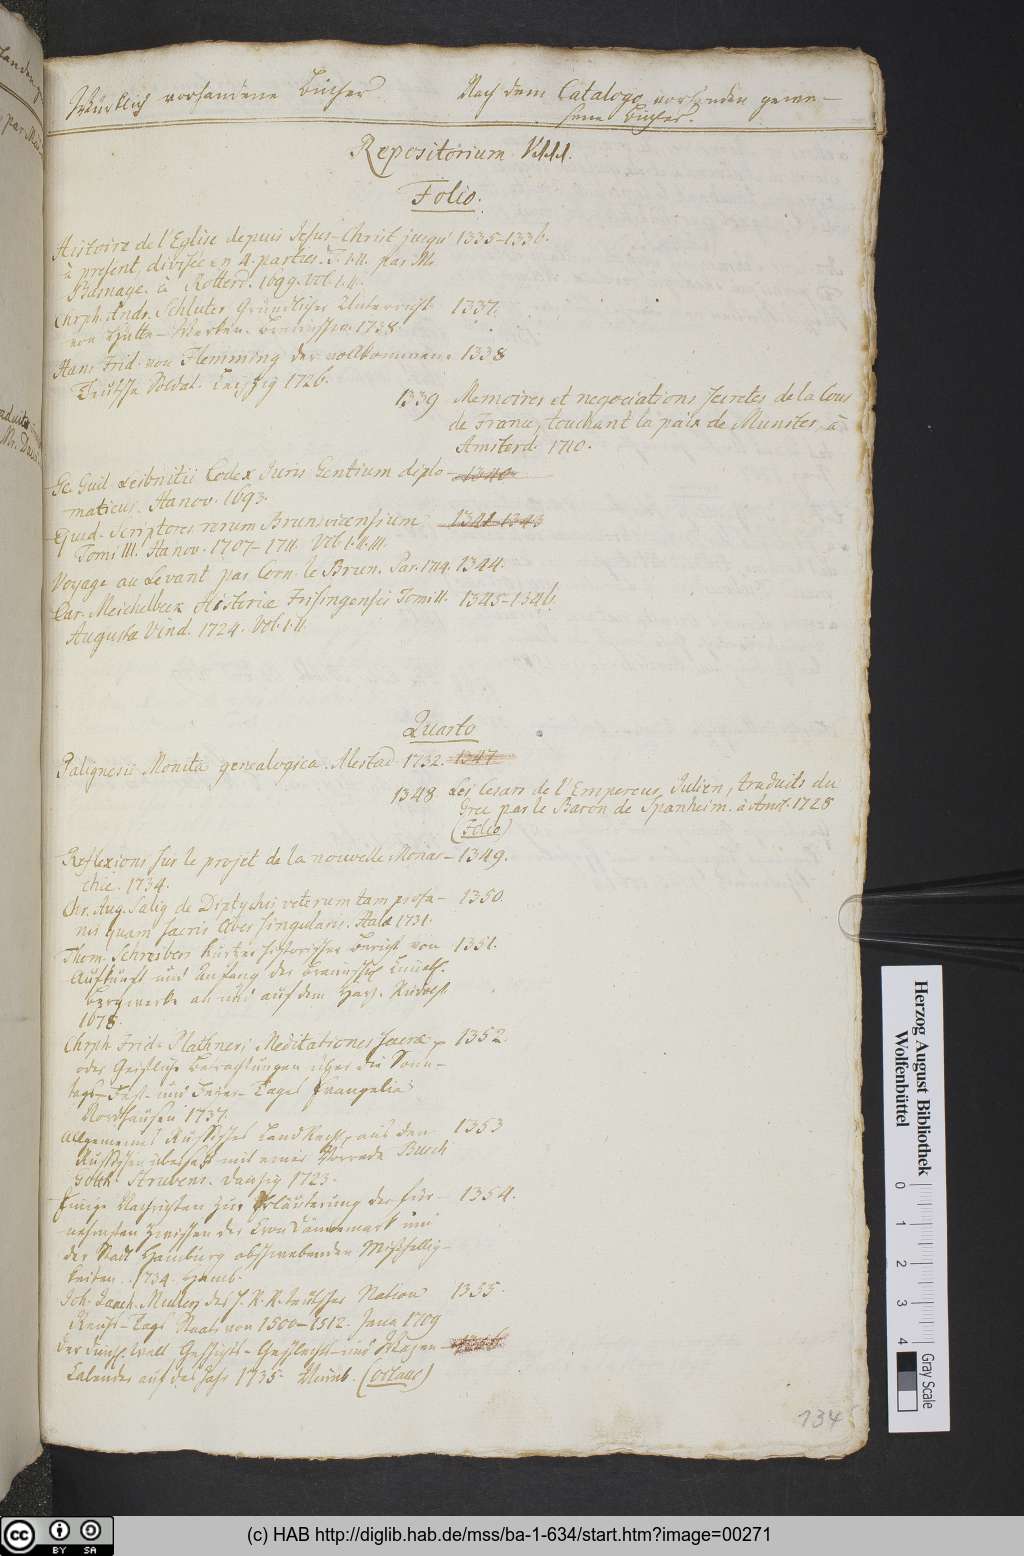 Würklich vorhandene Bücher
Nach dem Catalogo vorhanden gewe-
sene Bücher.
Repositorium VIII.
Folio.
Histoire de l'Eglise depuis Jesus-Christ jusqu' 1335-1336.
à present, divisée en 4. parties. T. I. II. par Mr.
Basnage. à Rotterd. 1699. Vol. I. II.
Chrph. Andr. Schluter Gründlicher Unterricht 1337.
von Hütte-Werken. Braunschw. 1738.
Hans Frid. von Flemming der vollkommene 1338
Teutsche Soldat. Leipzig 1726.
1339 Memoires et negociations secretes de la Cour
de France, touchant la paix de Munster, à
Amsterd. 1710.
G. Guil. Leibnitii Codex Juris Gentium diplo- 1340
maticus. Hanov. 1693.
Ejusd. Scriptores rerum Brunsvicensium 1341-1343
Tomi III. Hanov. 1707-1711. Vol. I. II. III.
Voyage au Levant par Corn. le Brun. Par. 1714. 1344.
Car. Meichelbeck Historiæ Frisingensis Tomi II. 1345-1346.
Augustæ Vind. 1724. Vol. I. II.
Quarto
Palignesii Monita genealogica. 1732. 1347
1348 Les Cesars de l'Empereur Julien, traduits du
Grec par le Baron de Spanheim. à Amst. 1728
(Folio)
Reflexions sur le projet de la nouvelle Monar- 1349.
chie. 1734.
Chr. Aug. Salig de Diptychis veterum tam profa- 1350.
nis quam sacris liber singularis. Halæ 1731.
Thom. Schreibers kurtzer historischer Bericht von 1351.
Aufkunft und Anfang der Braunschw. Lüneb.
Bergwerke an und auf dem Harz. Rudolst.
1678.
Chrph. Frid. Plathneri Meditationes sacræ, 1352.
oder Geistliche Betrachtungen über die Sonn-
tags- Fest- und Feyer-Tages Evangelia
Nordhausen 1737.
Allgemeines Russisches Land Recht, aus dem 1353
Russischen übersetzt mit einer Vorrede
Struvens. Dantzig 1723.
Einige Nachrichten zur Erläuterung der für- 1354.
nehmsten zwischen der Cron Dännemark und
der Stadt Hamburg obschwebenden Mißhellig-
keiten. 1734. Hamb.
Joh. Joach. Müllers des H. R. R. teutscher Nation 1355.
Reichs-Tags Staat von 1500-1512. Jena 1709
Der durchl. Welt Geschichts- Geschlechts- und Wapen
Calender auf das Jahr 1735. Nürnb. (octavo)
134
Herzog August Bibliothek
Wolfenbüttel
0 1 2 3 4
Gray Scale
cc BY SA
(c) HAB http://diglib.hab.de/mss/ba-1-634/start.htm?image=00271